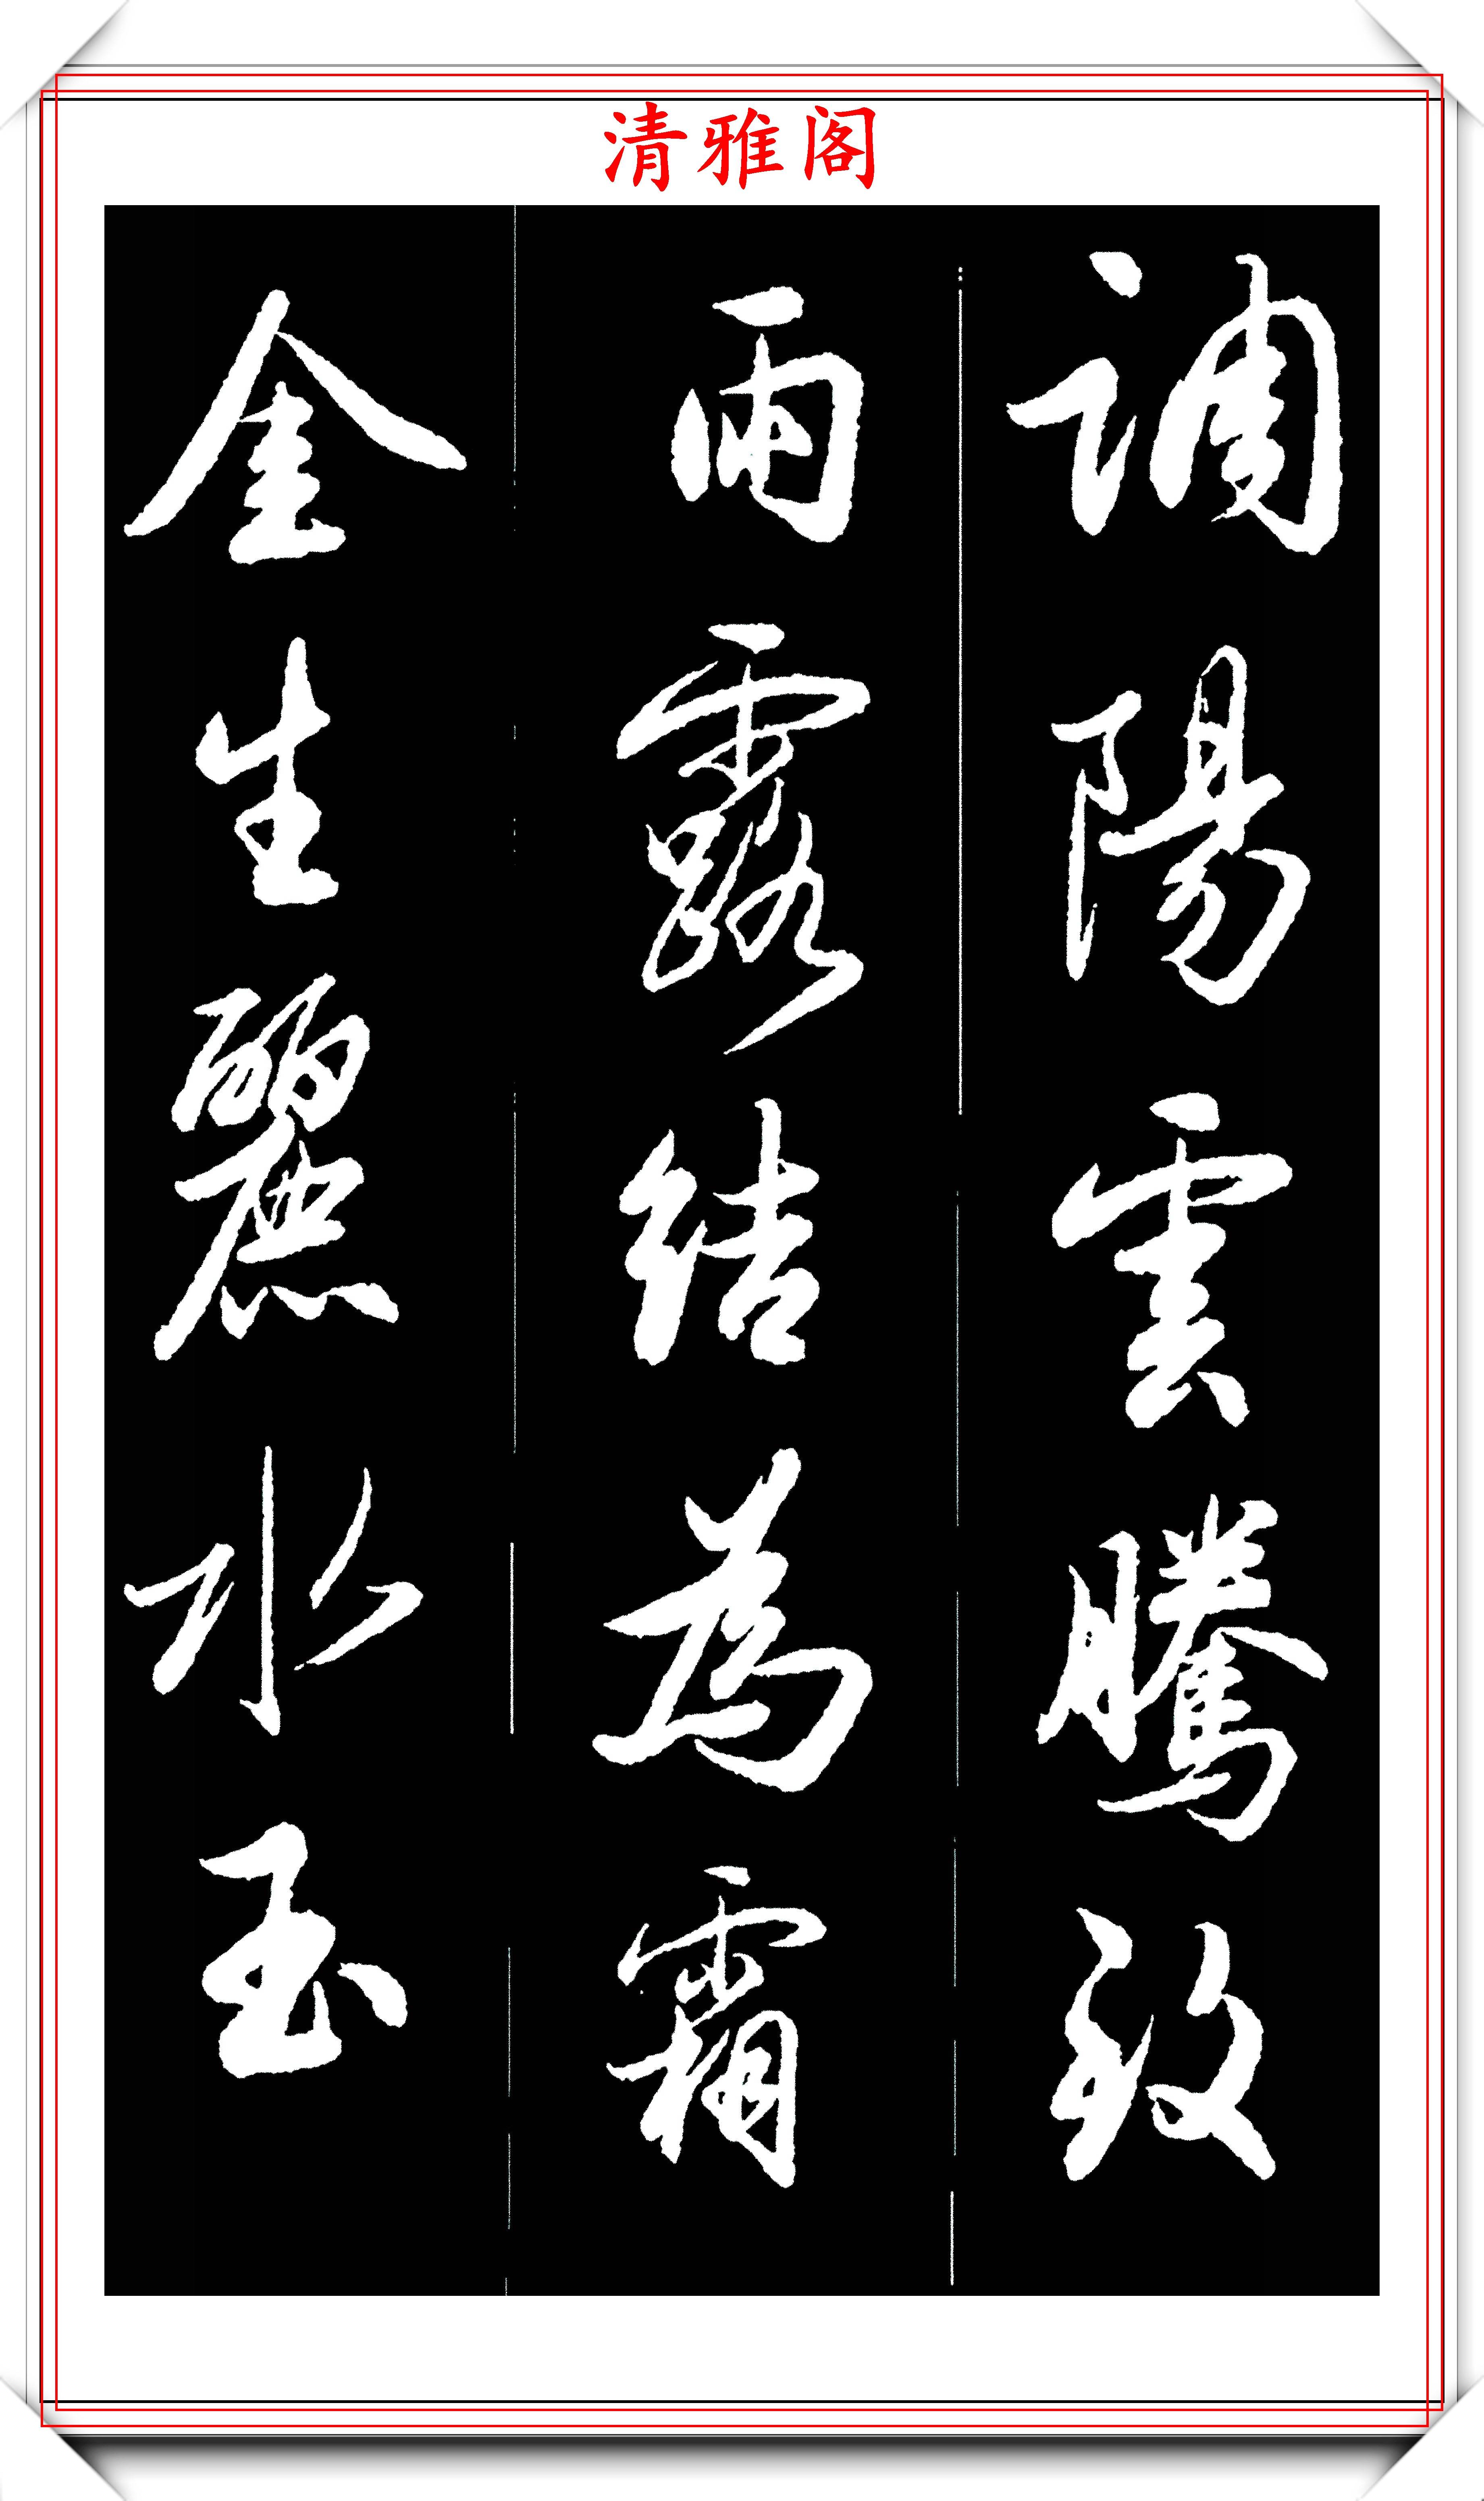 清雅阁
調陽雲騰致
雨露結為霜
金生麗水玉